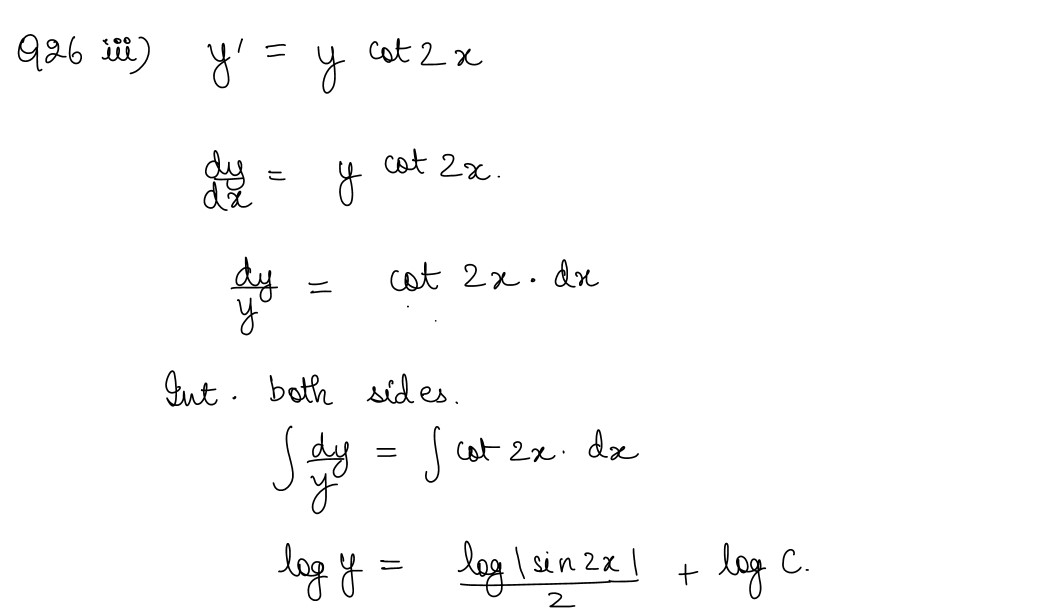 Q26 iii) y' = y cot 2x
dy/dx = y cot 2x.
dy/y = cot 2x . dx
Int. both sides.
∫ dy/y = ∫ cot 2x. dx
log y = log |sin 2x| / 2 + log C.